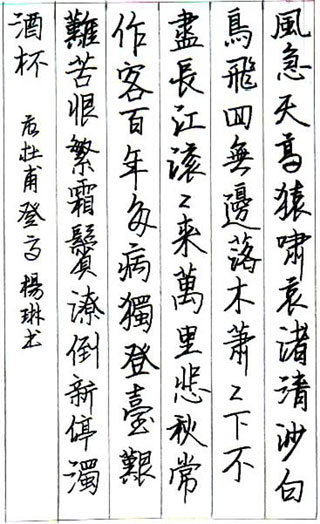 風急天高猿嘯哀渚清沙白
鳥飛回無邊落木蕭〻下不
盡長江滚〻来萬里悲秋常
作客百年多病獨登臺艱
難苦恨繁霜鬢潦倒新停濁
酒杯
右杜甫登高 楊琳书